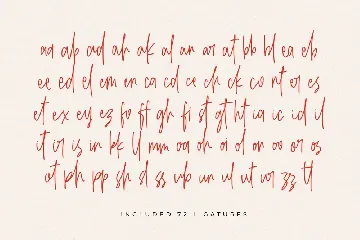 aa ab ad ah ak al an ar at bb bl ea eb
ee ed el em en ca cd ce ch ck co nt er es
et ex ey ez fo ft gh fi st gt ht ia ic id il
it ir is in kk ll mm oa oh oi ol on oo or os
ot ph pp sh sl ss ub un ul ut ur zz tl
INCLUDED 72 LIGATURES